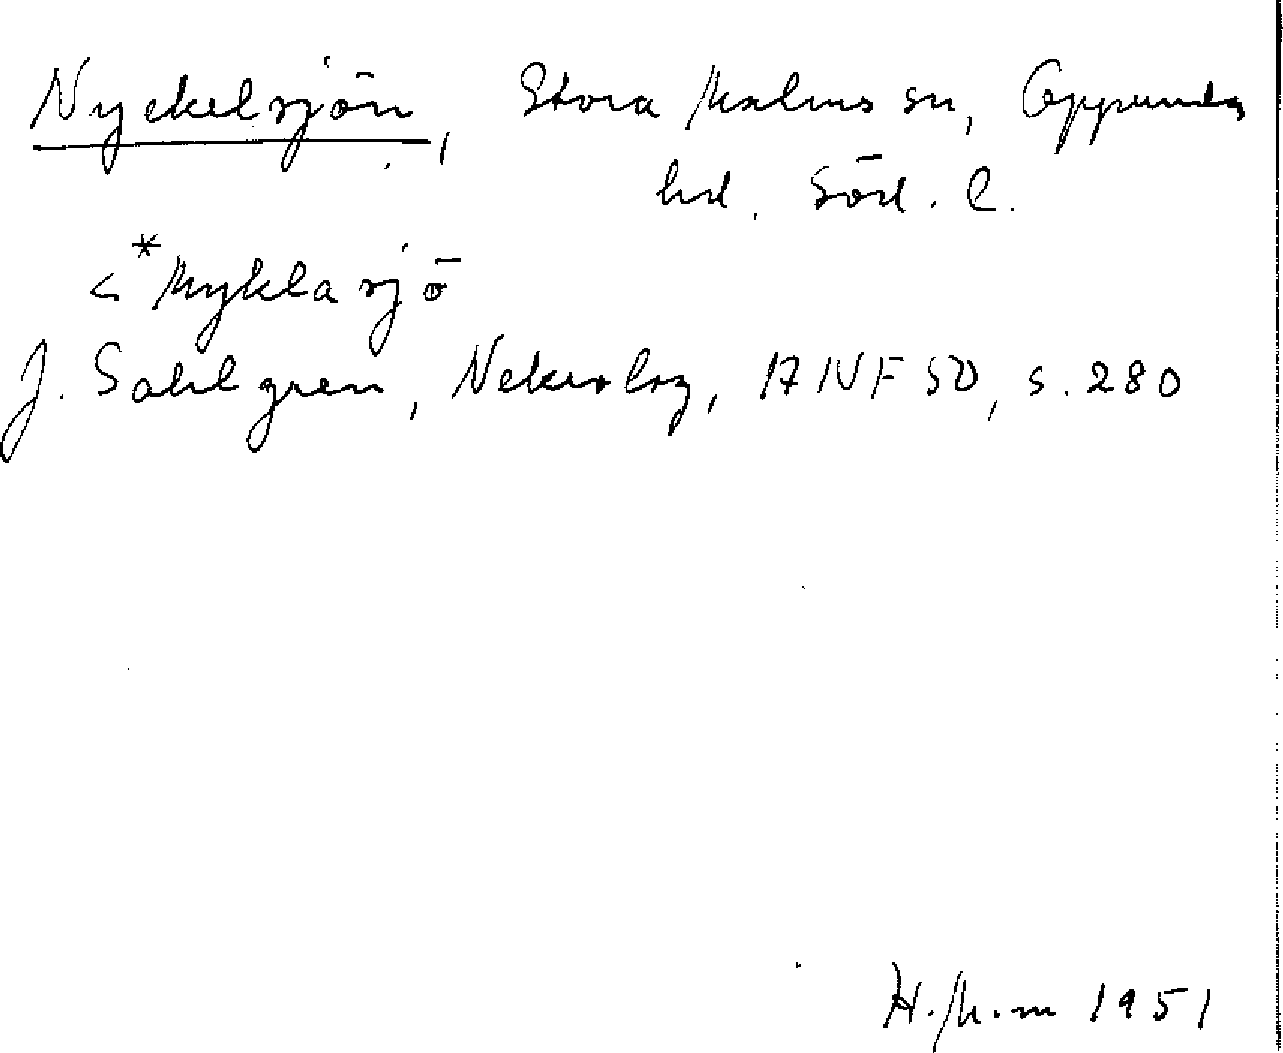 Nyckelsjön, Stora Malms sn, Oppunda
hd. Söd. l.
< *Mykla sjö
J. Sahlgren, Nekrolog, ANF 50, s. 280
H. M-m 1951